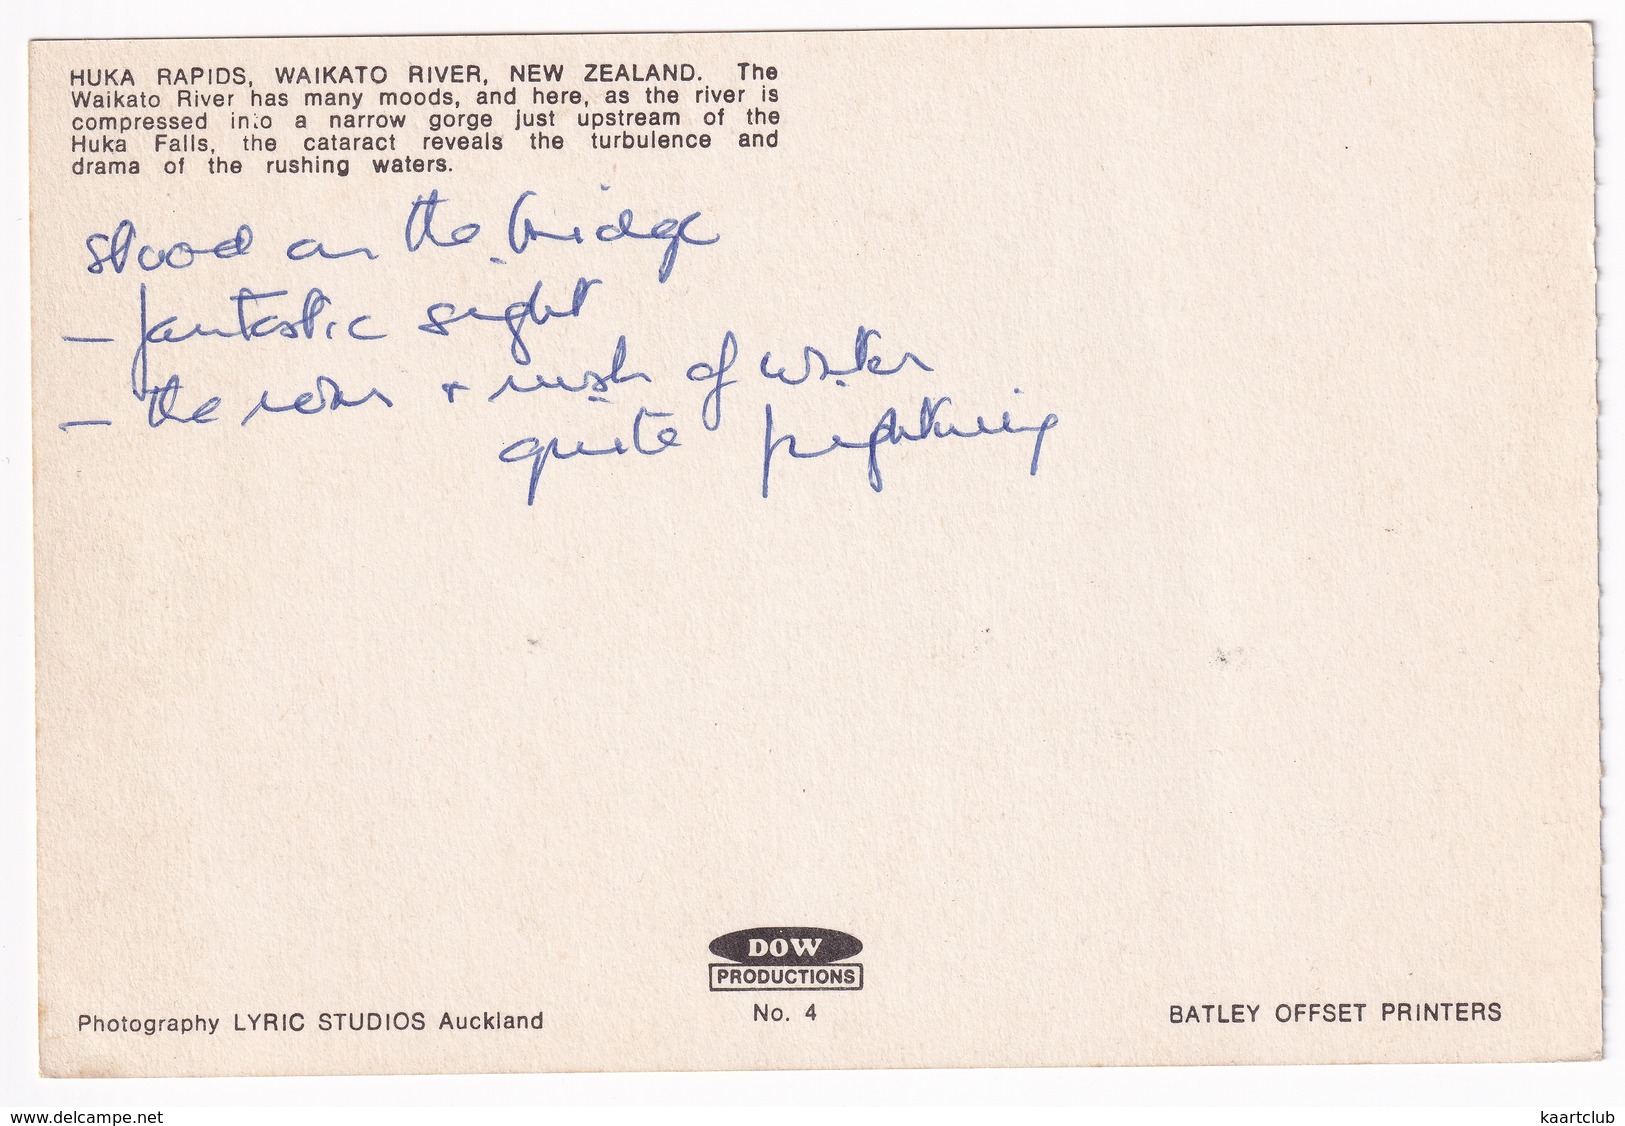 HUKA RAPIDS, WAIKATO RIVER, NEW ZEALAND. The
Waikato River has many moods, and here, as the river is
compressed into a narrow gorge just upstream of the
Huka Falls, the cataract reveals the turbulence and
drama of the rushing waters.
stood on the bridge
– fantastic sight
– the roar + rush of water
quite frightening
DOW
PRODUCTIONS
No. 4
Photography LYRIC STUDIOS Auckland
BATLEY OFFSET PRINTERS
www.delcampe.net
kaartclub